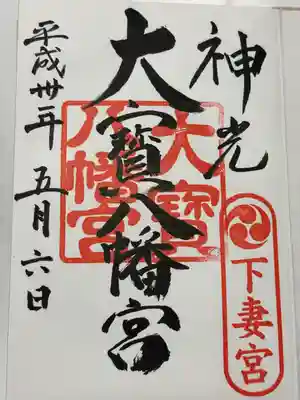 神光
下妻宮
大寳八幡宮
大寳
八幡宮
平成卅年 五月六日